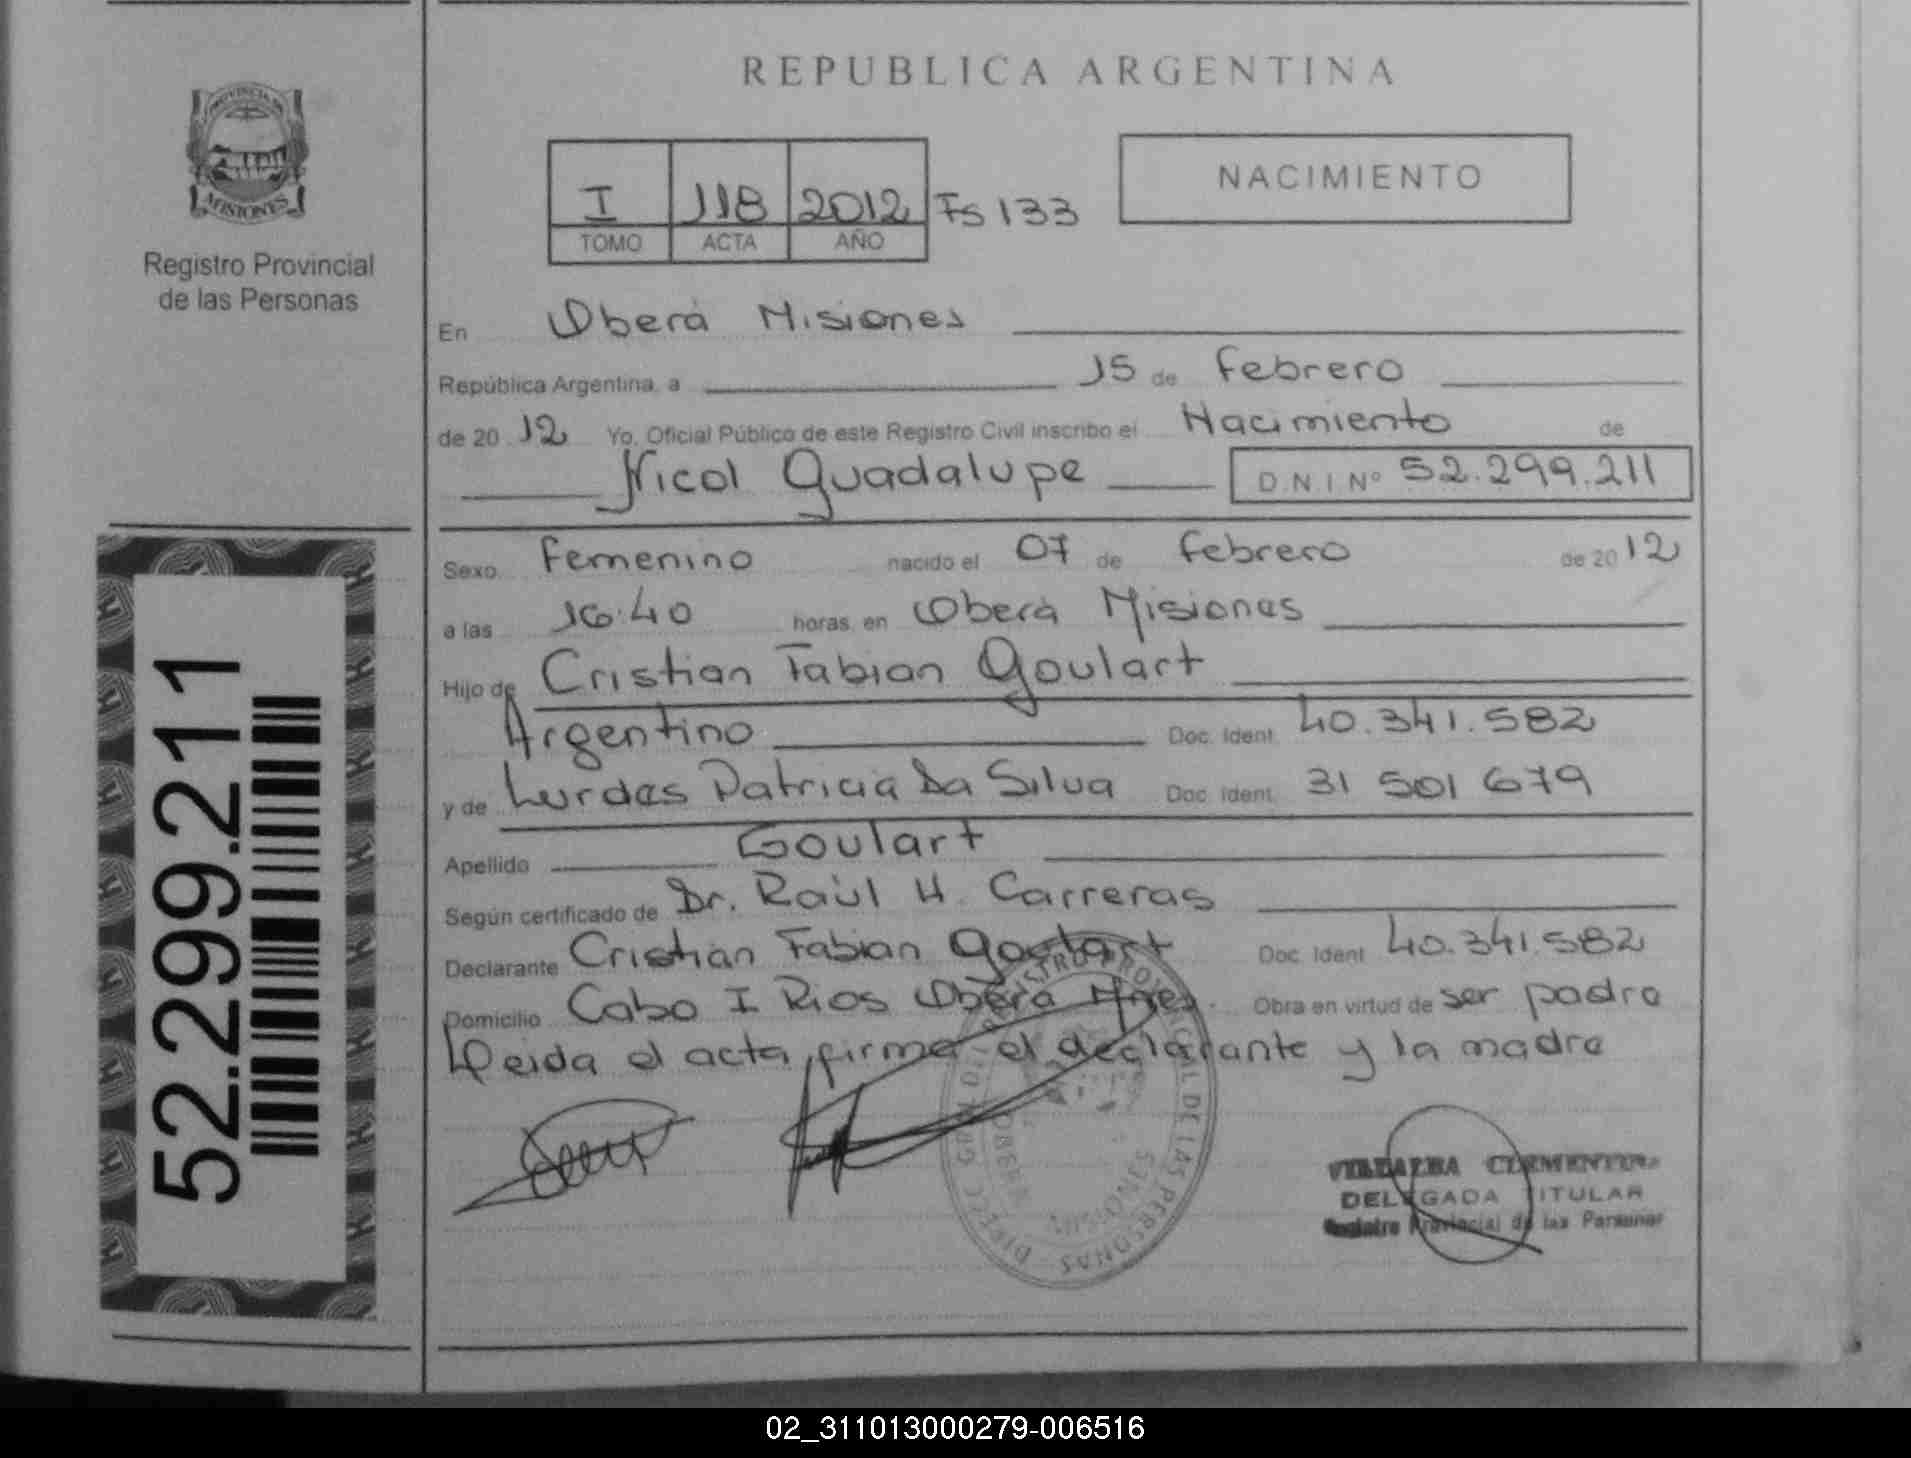 REPUBLICA ARGENTINA
PROVINCIA DE
MISIONES
Registro Provincial
de las Personas
I 118 2012 Fs 133
TOMO ACTA AÑO
NACIMIENTO
En Oberá Misiones
República Argentina, a 15 de Febrero
de 20 12 Yo, Oficial Público de este Registro Civil inscribo el Nacimiento de
Nicol Guadalupe D.N.I Nº 52.299.211
Sexo Femenino nacido el 07 de Febrero de 20 12
a las 16:40 horas, en Oberá Misiones
Hijo de Cristian Fabian Goulart
Argentino Doc. Ident. 40.341.582
y de Lurdes Patricia Da Silva Doc. Ident. 31 501 679
Apellido Goulart
Según certificado de Dr. Raúl H. Carreras
Declarante Cristian Fabian Goulart Doc. Ident 40.341.582
Domicilio Cabo I Rios Oberá Mnes. Obra en virtud de ser padre
Leida el acta, firma el declarante y la madre
52.299.211
REGISTRO PROVINCIAL DE LAS PERSONAS
OBERA
MISIONES
VILLALBA CLEMENTINA
DELEGADA TITULAR
Registro Provincial de las Personas
02_311013000279-006516